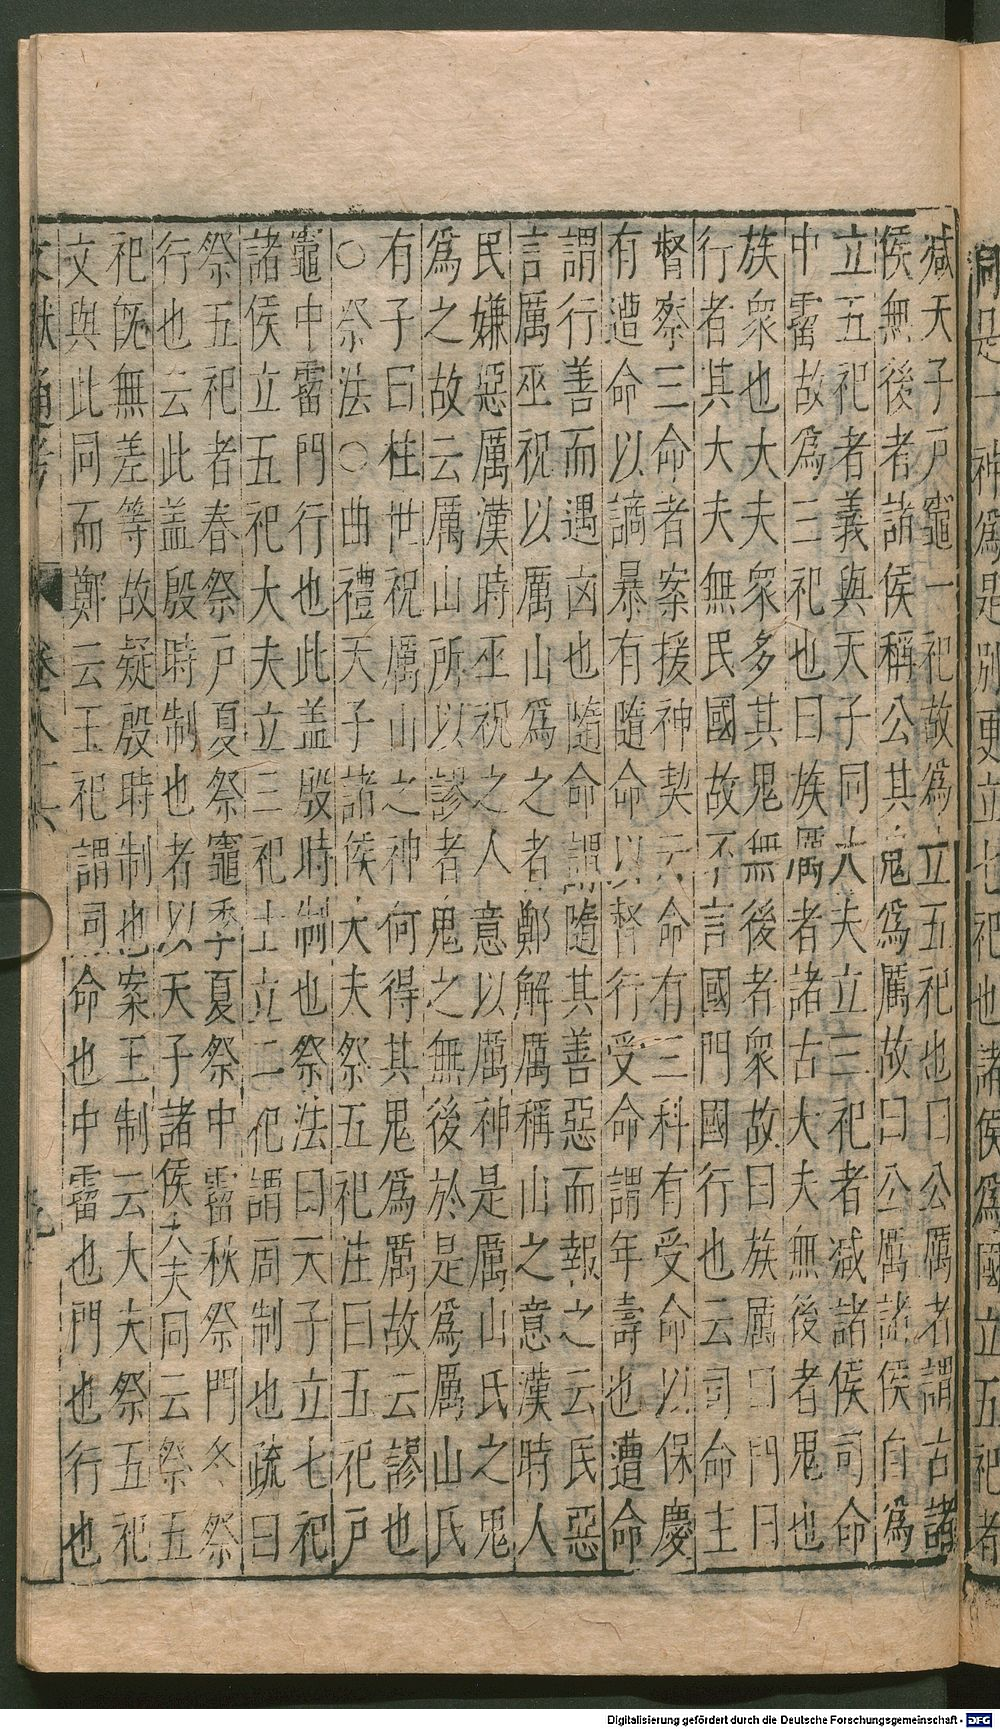 司是一神爲是別更立七祀也諸侯爲國立五祀者
減天子戶竈一祀故爲立五祀也曰公厲者謂古諸
侯無後者諸侯稱公其鬼爲厲故曰公厲諸侯自爲
立五祀者義與天子同大夫立三祀者減諸侯司命
中霤故爲三祀也曰族厲者諸古大夫無後者鬼也
族衆也大夫衆多其鬼無後者衆故曰族厲曰門曰
行者其大夫無民國故不言國門國行也云司命主
督察三命者案援神契云命有三科有受命以保慶
有遭命以謫暴有隨命以督行受命謂年壽也遭命
謂行善而遇凶也隨命謂隨其善惡而報之云民惡
言厲巫祝以厲山爲之者鄭解厲稱山之意漢時人
民嫌惡厲漢時巫祝之人意以厲神是厲山氏之鬼
爲之故云厲山所以謬者鬼之無後於是爲厲厲山氏
有子曰柱世祝厲山之神何得其鬼爲厲故云謬也
○祭法○曲禮天子諸侯大夫祭五祀注曰五祀戶
竈中霤門行也此盖殷時制也祭法曰天子立七祀
諸侯立五祀大夫立三祀士立二祀謂周制也疏曰
祭五祀者春祭戶夏祭竈季夏祭中霤秋祭門冬祭
行也云此盖殷時制也者以天子諸侯大夫同云祭五
祀旣無差等故疑殷時制也案王制云大夫祭五祀
文與此同而鄭云五祀謂司命也中霤也門也行也
文獻通考 卷八十六 九